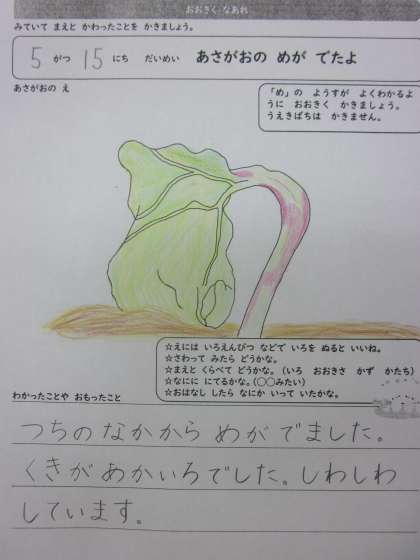 おおきく なあれ
みていて まえと かわったことを かきましょう。
5 がつ 15 にち だいめい あさがおの めが でたよ
あさがおの え
「め」の ようすが よくわかるよ
うに おおきく かきましょう。
うえきばちは かきません。
☆えには いろえんぴつ などで いろを ぬると いいね。
☆さわって みたら どうかな。
☆まえと くらべて どうかな。(いろ おおきさ かず かたち)
☆なにに にてるかな。(○○みたい)
☆おはなし したら なにか いって いたかな。
わかったことや おもったこと
つちの なかから めが でました。
くきが あかいろでした。しわしわ
しています。